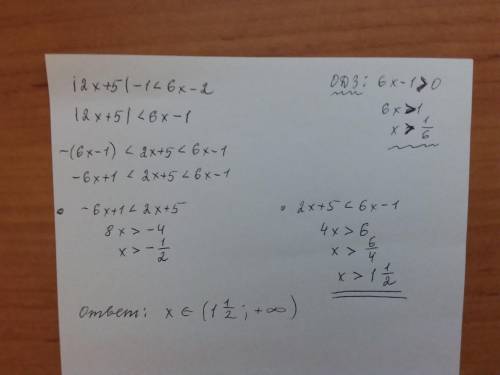 |2x+5|-1<6x-2
|2x+5|<6x-1
-(6x-1) < 2x+5 < 6x-1
-6x+1 < 2x+5 < 6x-1
• -6x+1 < 2x+5
8x > -4
x > -1/2
ОДЗ: 6x-1>0
6x>1
x > 1/6
• 2x+5 < 6x-1
4x > 6
x > 6/4
x > 1 1/2
Ответ: x ∈ (1 1/2; +∞)